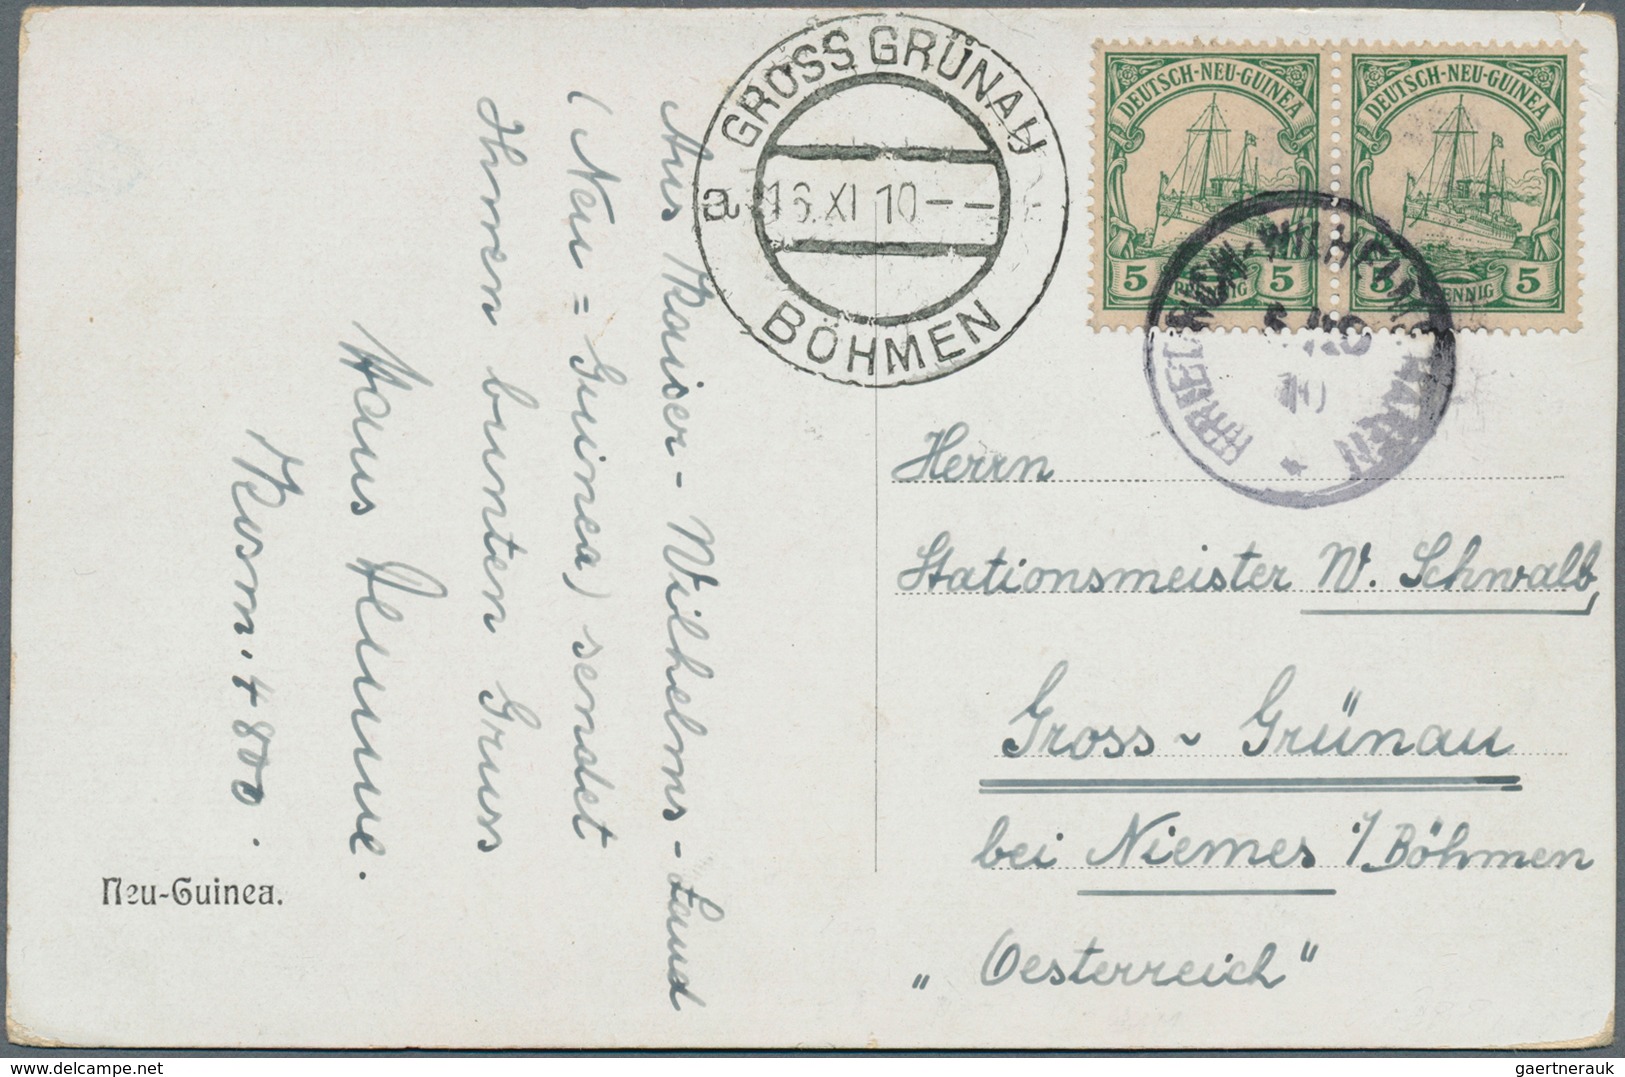 Aus Kaiser-Wilhelms-Land
(Neu = Guinea) sendet
Ihnen bunten Gruss
Hans
Kosm. 4800.
Neu-Guinea.
GROSS GRÜNAU
a 16.XI 10 - -
BÖHMEN
DEUTSCH-NEU-GUINEA
5 PFENNIG 5
DEUTSCH-NEU-GUINEA
5 PFENNIG 5
FRIEDRICH-WILHELMSHAFEN
10
Herrn
Stationsmeister W. Schwalb,
Gross - Grünau
bei Niemes i/Böhmen
„Oesterreich"
delcampe.net
gaertnerauk